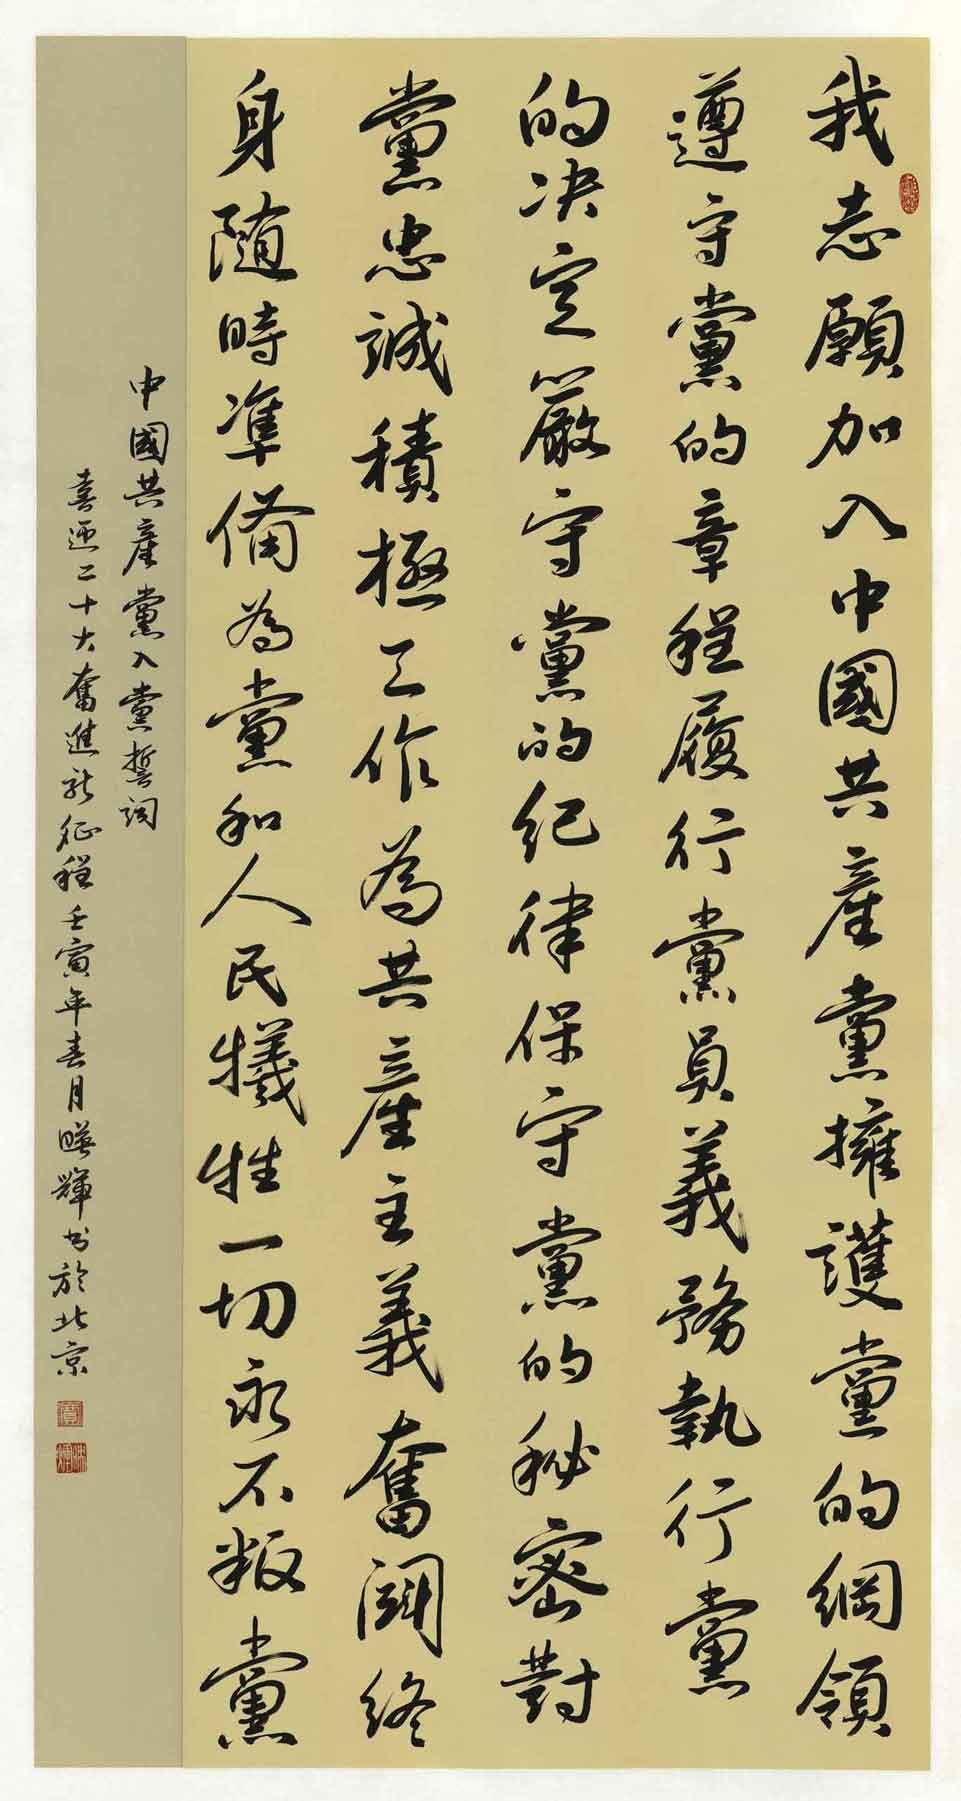 我志願加入中國共產黨擁護黨的綱領
遵守黨的章程履行黨員義務執行黨
的決定嚴守黨的紀律保守黨的秘密對
黨忠誠積極工作為共產主義奮鬭終
身隨時準備為黨和人民犧牲一切永不叛黨
中國共產黨入黨誓詞
喜迎二十大奮進新征程壬寅年春月暎輝書於北京